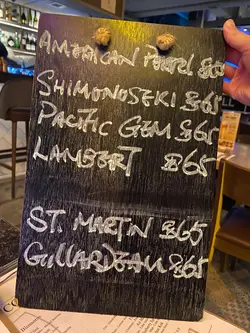 AMERICAN PURPLE $65
SHIMONOSEKI $65
PACIFIC GEM $65
LAMBERT $65
ST. MARTIN $65
GILLARDEAU $65